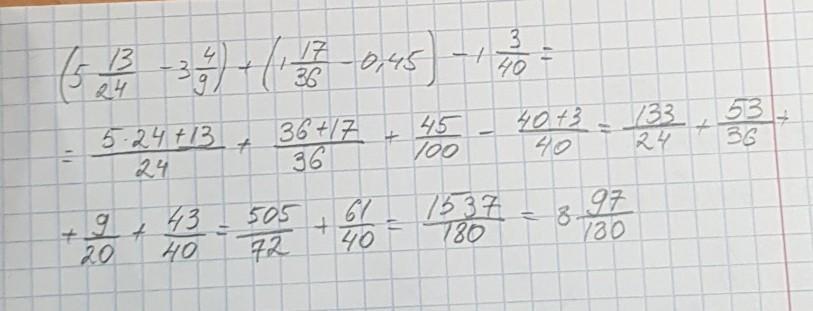 (5 13/24 - 3 4/9) + (1 17/36 - 0,45) - 1 3/40 =
= (5·24+13)/24 + (36+17)/36 + 45/100 - (40+3)/40 = 133/24 + 53/36 +
+ 9/20 + 43/40 = 505/72 + 61/40 = 1537/180 = 8 97/180